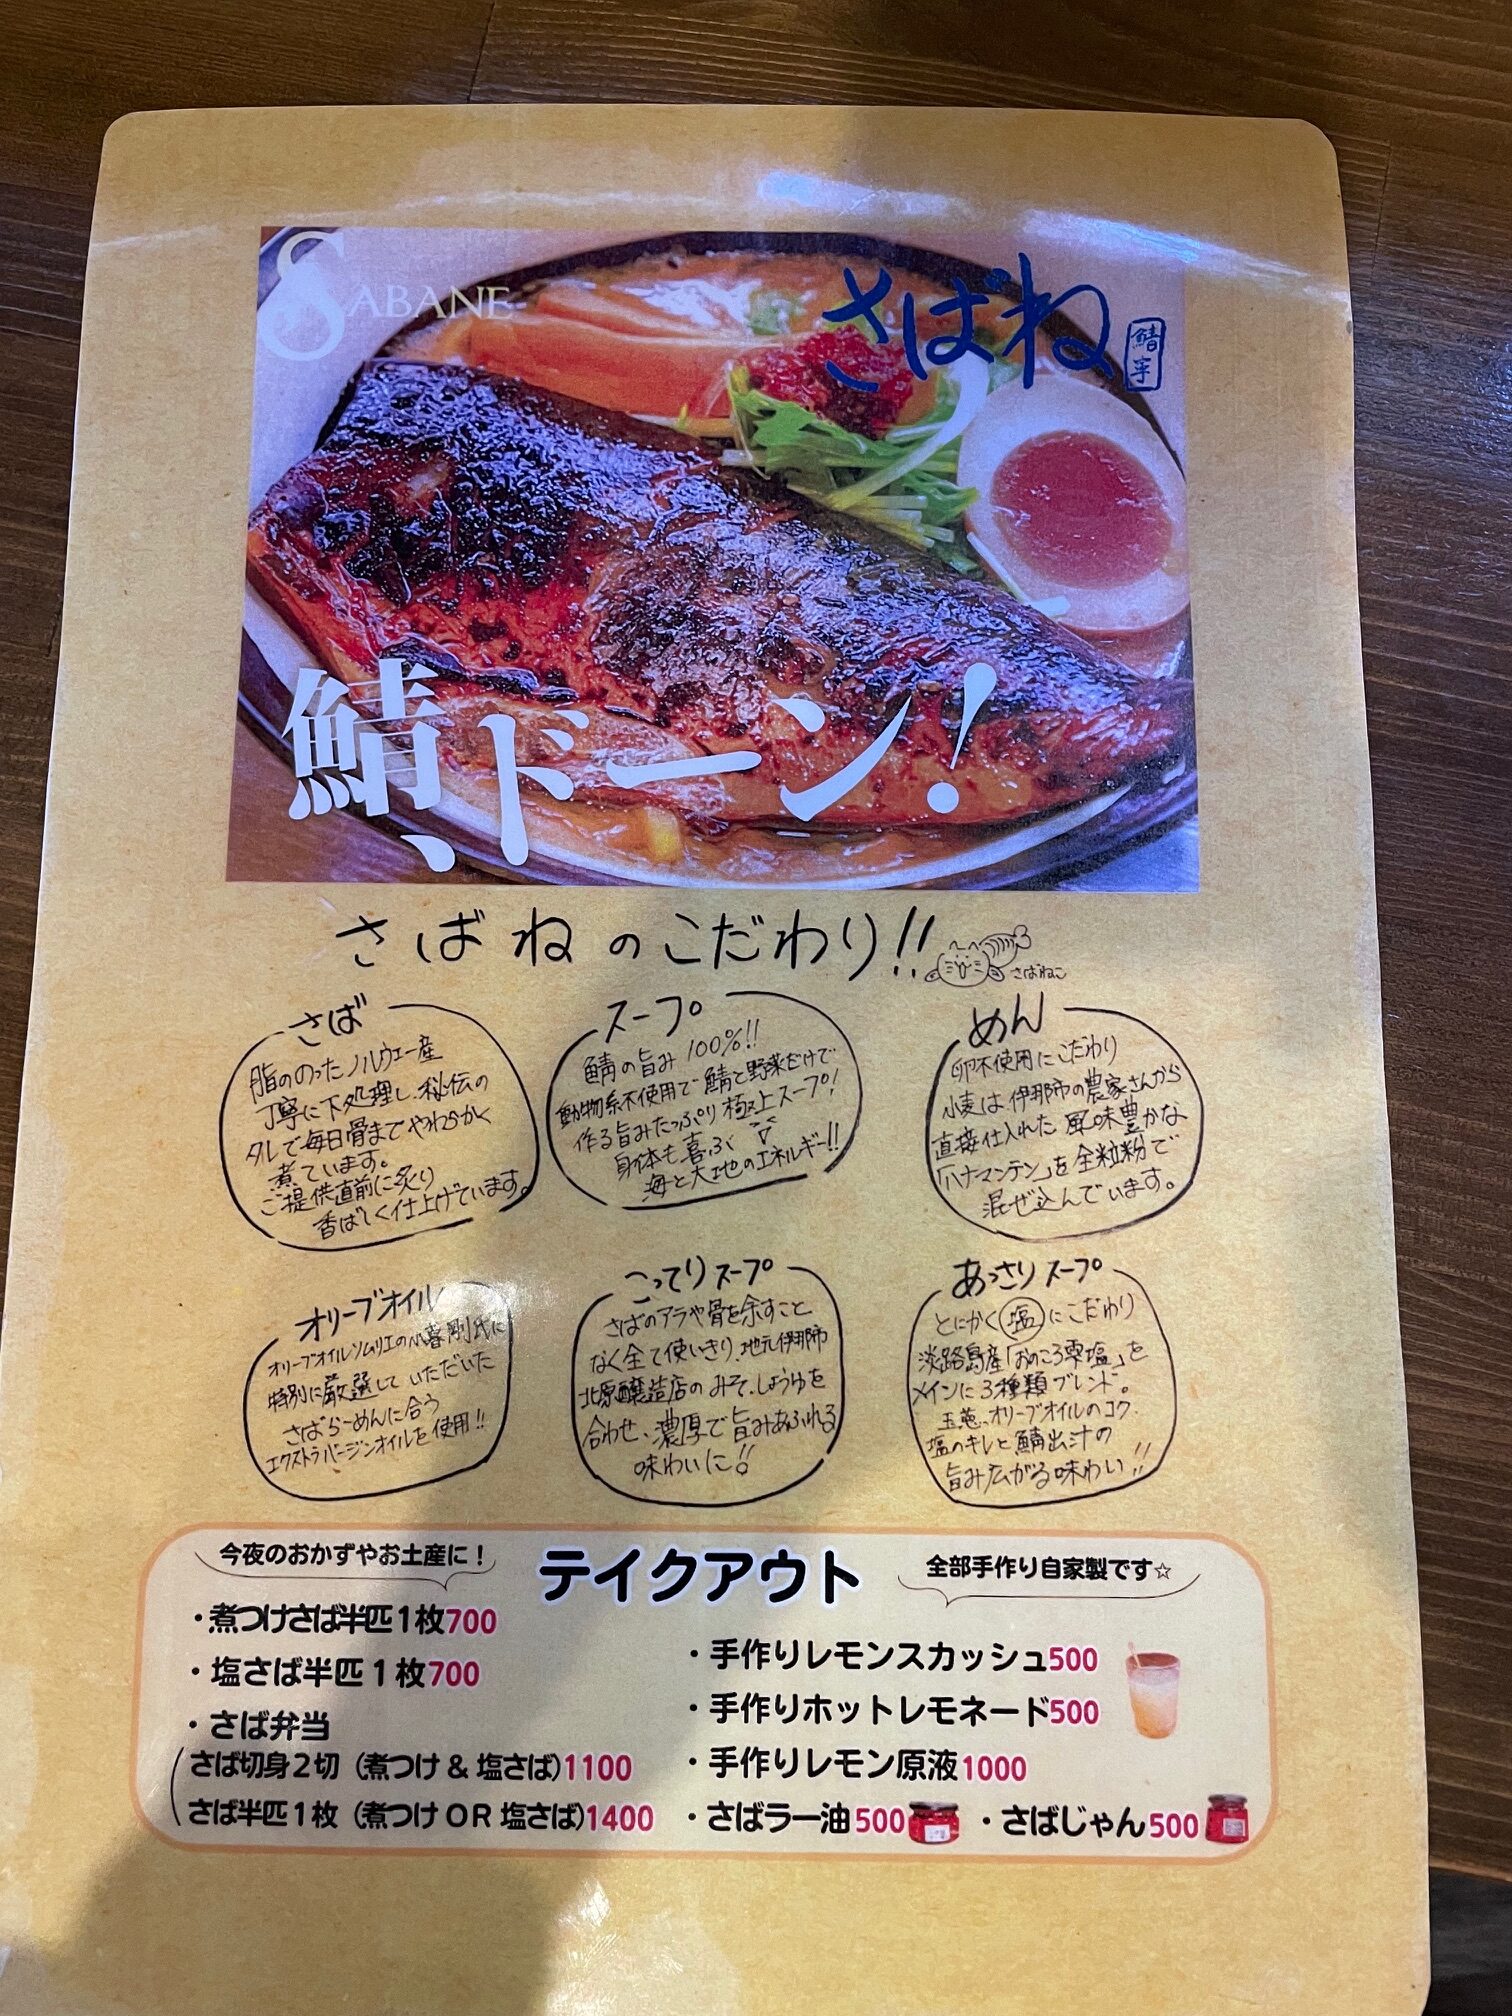 SABANE
さばね
鯖、ドーン!
さばねのこだわり!!
さばねこ
さば
脂ののったノルウェー産
丁寧に下処理し、秘伝の
タレで毎日骨までやわらかく
煮ています。
ご提供直前に炙り
香ばしく仕上げています。
スープ
鯖の旨み100%!!
動物系不使用で鯖と野菜だけで
作る旨みたっぷり極上スープ!
身体も喜ぶ
海と大地のエネルギー!!
めん
卵不使用にこだわり
小麦は伊那市の農家さんから
直接仕入れた風味豊かな
「ハナマンテン」を全粒粉で
混ぜ込んでいます。
オリーブオイル
オリーブオイルソムリエの小暮剛氏に
特別に厳選していただいた
さばらーめんに合う
エクストラバージンオイルを使用!!
こってりスープ
さばのアラや骨を余すこと
なく全て使いきり、地元伊那市
北原醸造店のみそ、しょうゆを
合わせ、濃厚で旨みあふれる
味わいに!!
あっさりスープ
とにかく塩にこだわり
淡路島産「おのころ雫塩」を
メインに3種類ブレンド。
玉葱、オリーブオイルのコク
塩のキレと鯖出汁の
旨み広がる味わい!!
今夜のおかずやお土産に!
テイクアウト
全部手作り自家製です☆
・煮つけさば半匹1枚700
・塩さば半匹1枚700
・さば弁当
さば切身2切(煮つけ&塩さば)1100
さば半匹1枚(煮つけOR塩さば)1400
・手作りレモンスカッシュ500
・手作りホットレモネード500
・手作りレモン原液1000
・さばラー油500 ・さばじゃん500